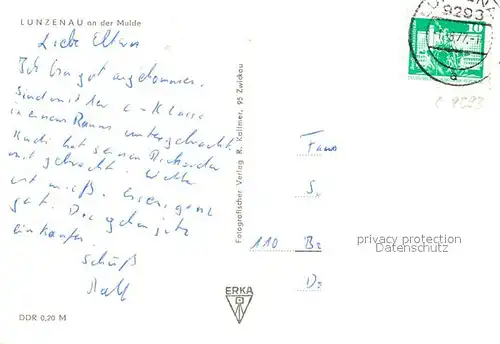 LUNZENAU an der Mulde
Liebe Eltern
Ich bin gut angekommen.
Sind mit der c-Klasse
in einem Raum untergebracht.
Rudi hat seinen
mit gebracht.
ist mieß.
gut. Die gehen jetz
einkaufen.
Schüß
Ralf
DDR 0,20 M
Fotografischer Verlag R. Kallmer, 95 Zwickau
ERKA
9293
77
a
10
c 9293
Fam
110 B
D
privacy protection
Datenschutz